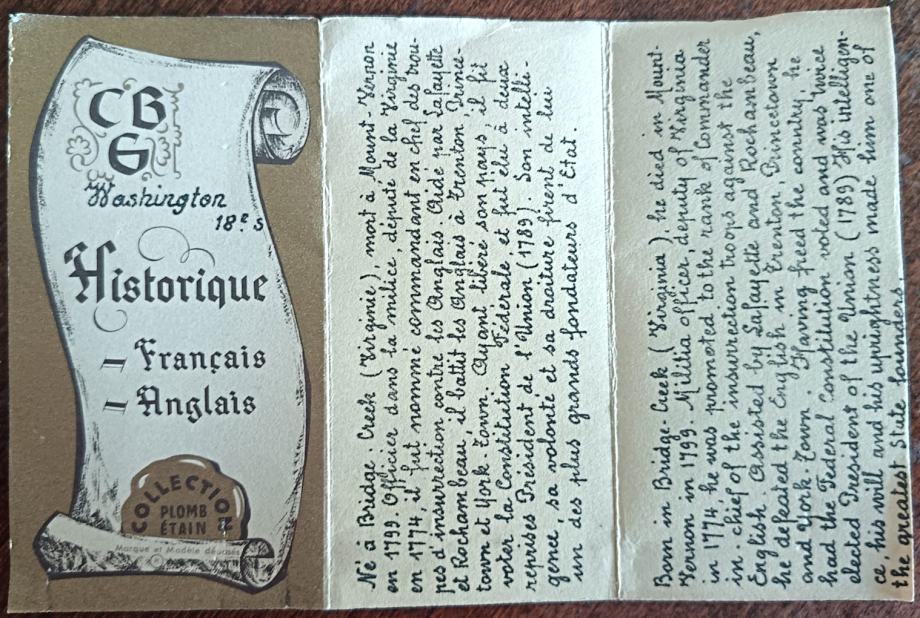 CBG
Washington
18e s
Historique
– Français
– Anglais
COLLECTION
PLOMB
ÉTAIN
Marque et Modèle déposés
Né à Bridge-Creek (Virginie), mort à Mount-Vernon
en 1799. Officier dans la milice, député de la Virginie
en 1774, il fut nommé commandant en chef des trou-
pes d'insurrection contre les Anglais. Aidé par Lafayette
et Rochambeau, il battit les Anglais à Trenton, Prince-
town et York-Town. Ayant libéré son pays, il fit
voter la Constitution Fédérale, et fut élu à deux
reprises Président de l'Union (1789). Son intelli-
gence, sa volonté et sa droiture firent de lui
un des plus grands fondateurs d'État.
Born in Bridge-Creek (Virginia), he died in Mount-
Vernon in 1799. Militia officer, deputy of Virginia
in 1774, he was promoted to the rank of Commander
in-chief of the insurrection troops against the
English. Assisted by Lafayette and Rochambeau,
he defeated the English in Trenton, Princetown
and York-Town. Having freed the country, he
had the Federal Constitution voted and was twice
elected President of the Union (1789) His intelligen-
ce, his will and his uprightness made him one of
the greatest State founders.